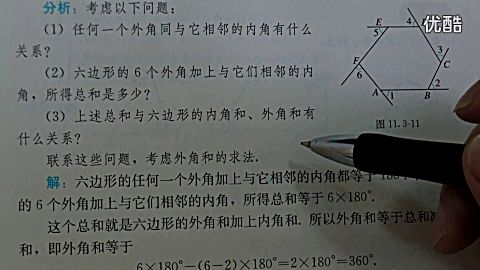 分析：考虑以下问题：
（1）任何一个外角同与它相邻的内角有什
么关系？
（2）六边形的6个外角加上与它们相邻的内
角，所得总和是多少？
（3）上述总和与六边形的内角和、外角和有
什么关系？
联系这些问题，考虑外角和的求法.
解：六边形的任何一个外角加上与它相邻的内角都等于180°
的6个外角加上与它们相邻的内角，所得总和等于6×180°.
这个总和就是六边形的外角和加上内角和. 所以外角和等于总和减
和，即外角和等于
6×180°−(6−2)×180°=2×180°=360°.
E 4
5
3
F C
6 2
A 1 B
图 11.3-11
优酷